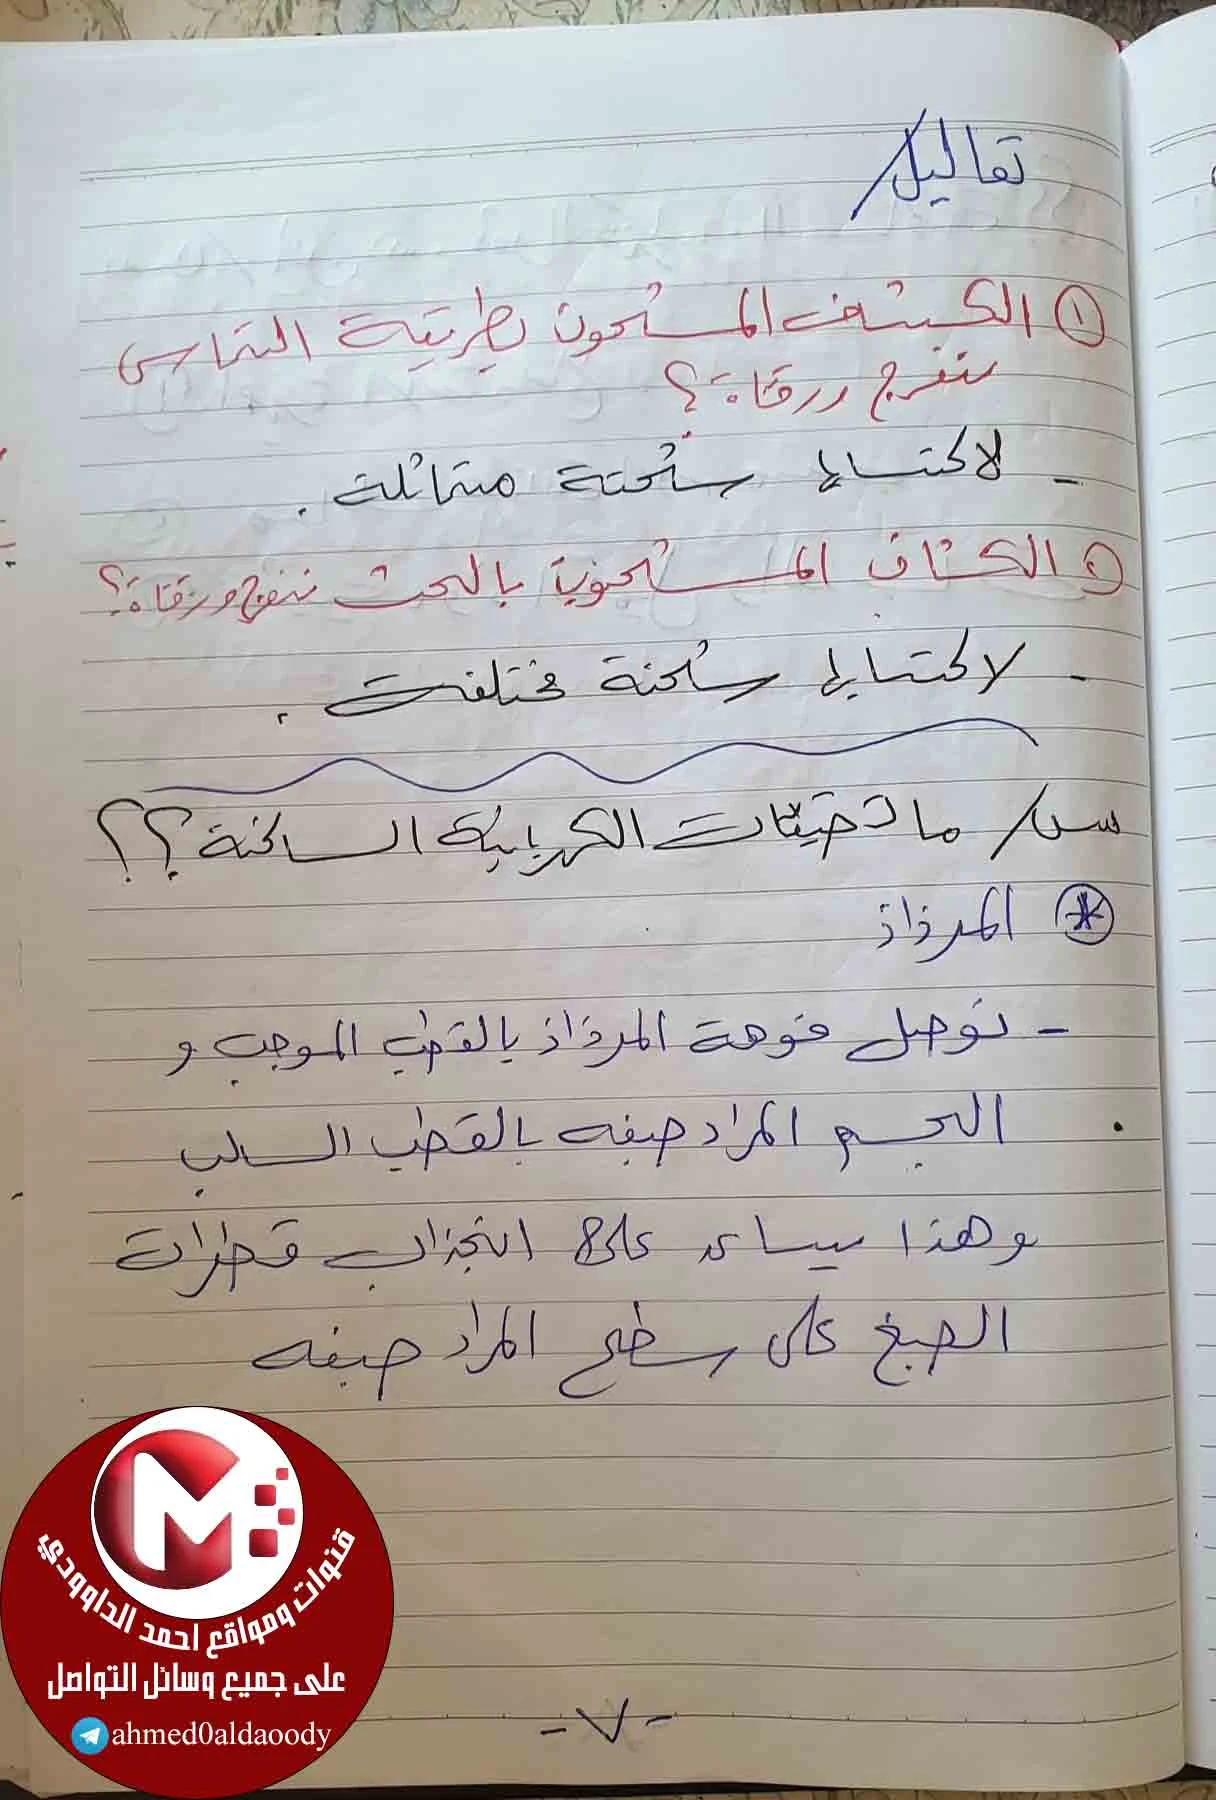 تعاليل/
① الكشف المشحون بطريقة التماس
تنفرج ورقاة؟
- لاكتسابها شحنة متماثلة.
الكشاف المشحون بالحث تنفرج ورقاة؟
- لاكتسابها شحنة مختلفة.
س/ ما تطبيقات الكهربائية الساكنة؟؟
* المرذاذ
- نوصل فوهة المرذاذ بالقطب الموجب و
الجسم المراد صبغه بالقطب السالب
وهذا يساعد على انجذاب قطرات
الصبغ على سطح المراد صبغه
قنوات ومواقع احمد الداوودي
على جميع وسائل التواصل
ahmed0aldaoody
-٧-